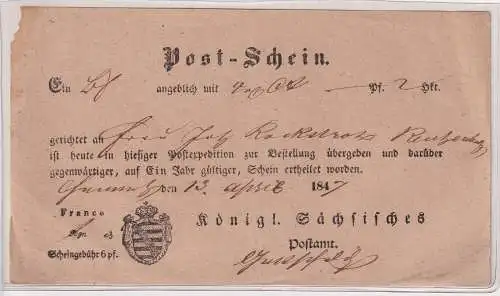 Post-Schein.
Ein Bf angeblich mit Pf. 2 Hkt.
gerichtet an Frau
ist heute in hiesiger Postexpedition zur Bestellung übergeben und darüber
gegenwärtiger, auf Ein Jahr gültiger, Schein ertheilet worden.
den 13 April 1847
Franco
Königl. Sächsisches
Postamt.
Scheingebühr 6 pf.